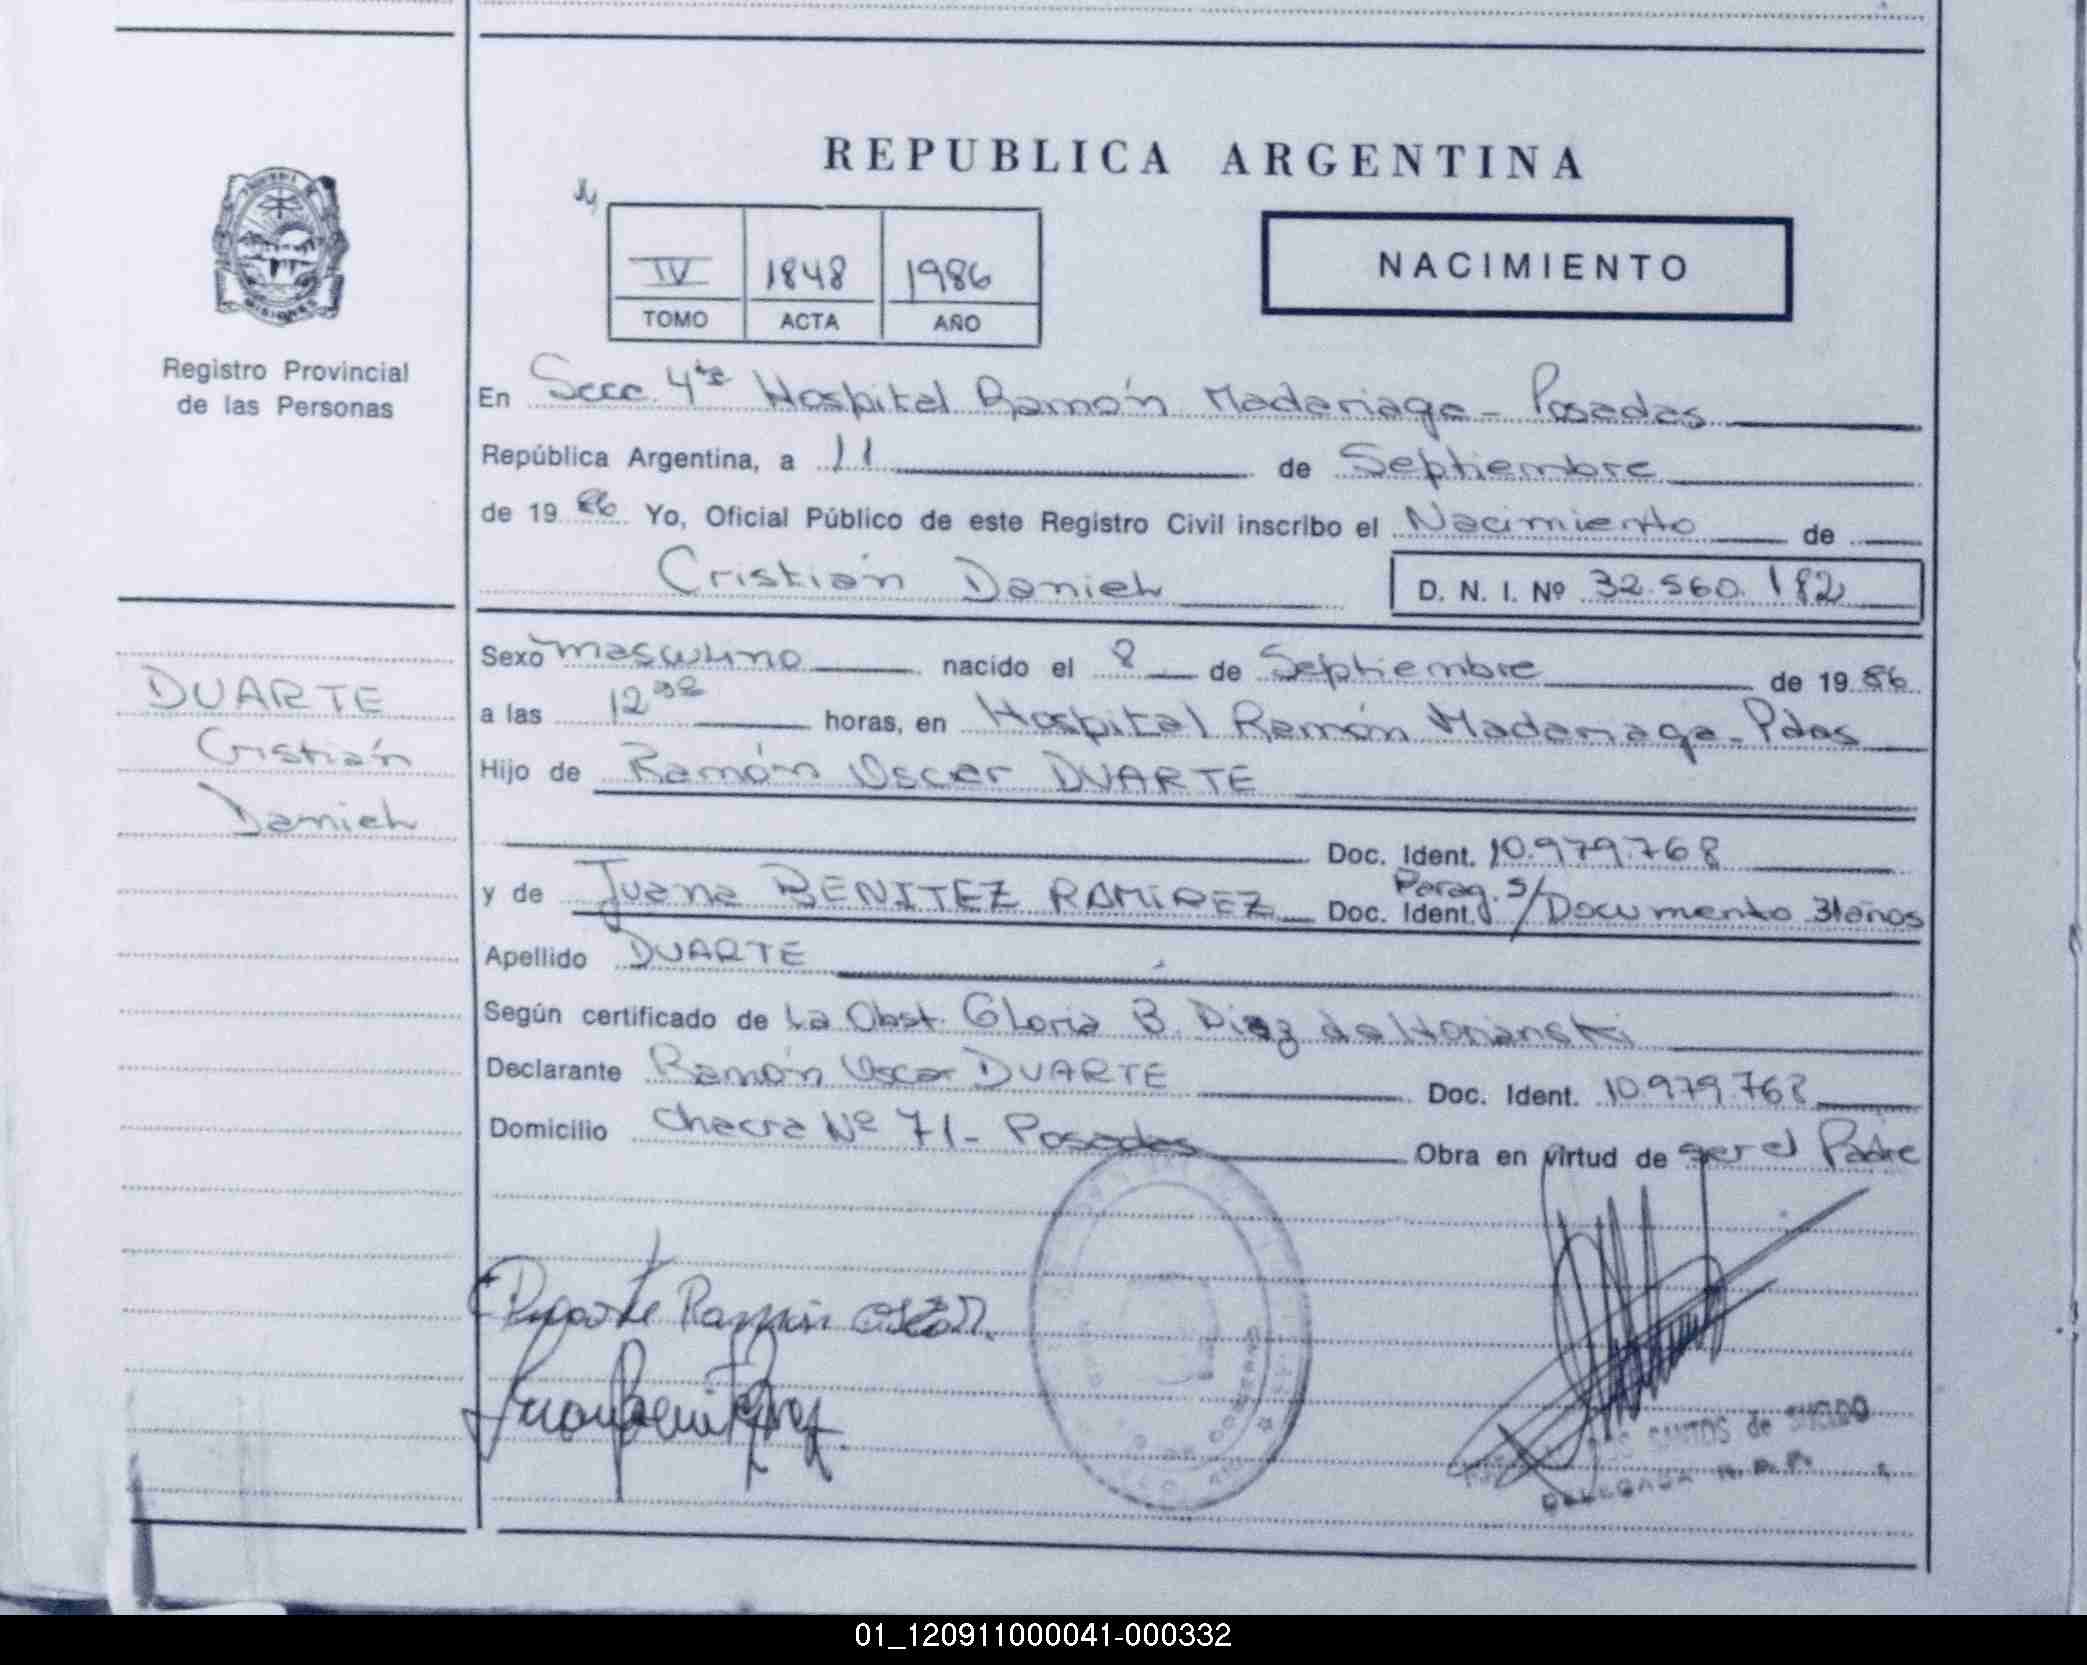 REPUBLICA ARGENTINA
IV 1848 1986
TOMO ACTA AÑO
NACIMIENTO
Registro Provincial
de las Personas
En Secc. 4ta Hospital Ramón Madariaga - Posadas
República Argentina, a 11 de Septiembre
de 1986 Yo, Oficial Público de este Registro Civil inscribo el Nacimiento de
Cristián Daniel D. N. I. Nº 32.560.182
DUARTE
Cristián
Daniel
Sexo masculino nacido el 8 de Septiembre de 1986
a las 12 horas, en Hospital Ramón Madariaga - Pdas
Hijo de Ramón Oscar DUARTE
Doc. Ident. 10.979.768
y de Juana BENITEZ RAMIREZ Doc. Ident. Parag. s/Documento 31años
Apellido DUARTE
Según certificado de La Obst. Gloria B. Diaz de
Declarante Ramón Oscar DUARTE Doc. Ident. 10.979.768
Domicilio Chacra Nº 71 - Posadas Obra en virtud de ser el Padre
Duarte Ramón oscar.
SANTOS de
DELEGADA R.P.P.
01_120911000041-000332